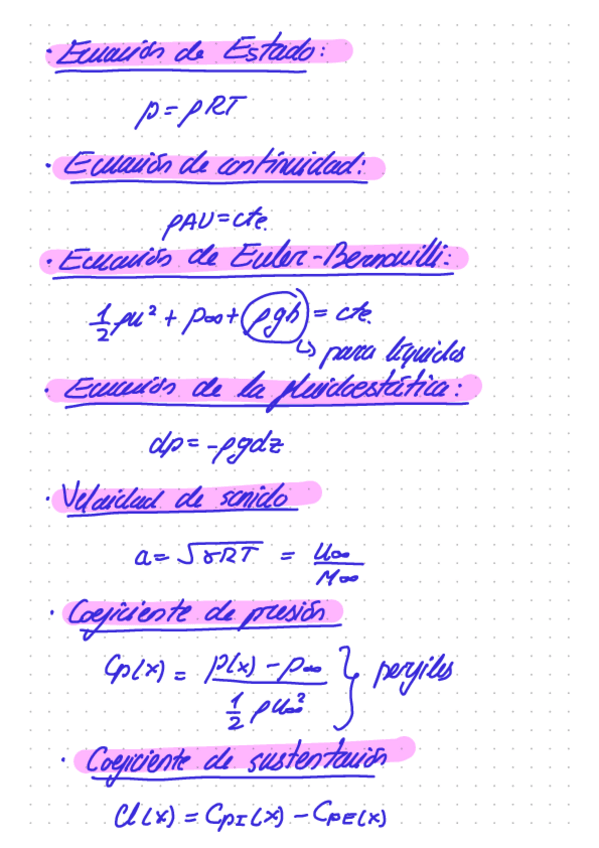 · Ecuación de Estado:
p = ρRT
· Ecuación de continuidad:
ρAU = cte.
· Ecuación de Euler-Bernouilli:
1/2 ρu² + p∞ + ρgh = cte.
↳ para líquidos
· Ecuación de la fluidoestática:
dp = -ρgdz
· Velocidad de sonido
a = √γRT = u∞/M∞
· Coeficiente de presión
Cp(x) = p(x) - p∞ / 1/2 ρu∞² } perfiles
· Coeficiente de sustentación
Cl(x) = CpI(x) - CpE(x)